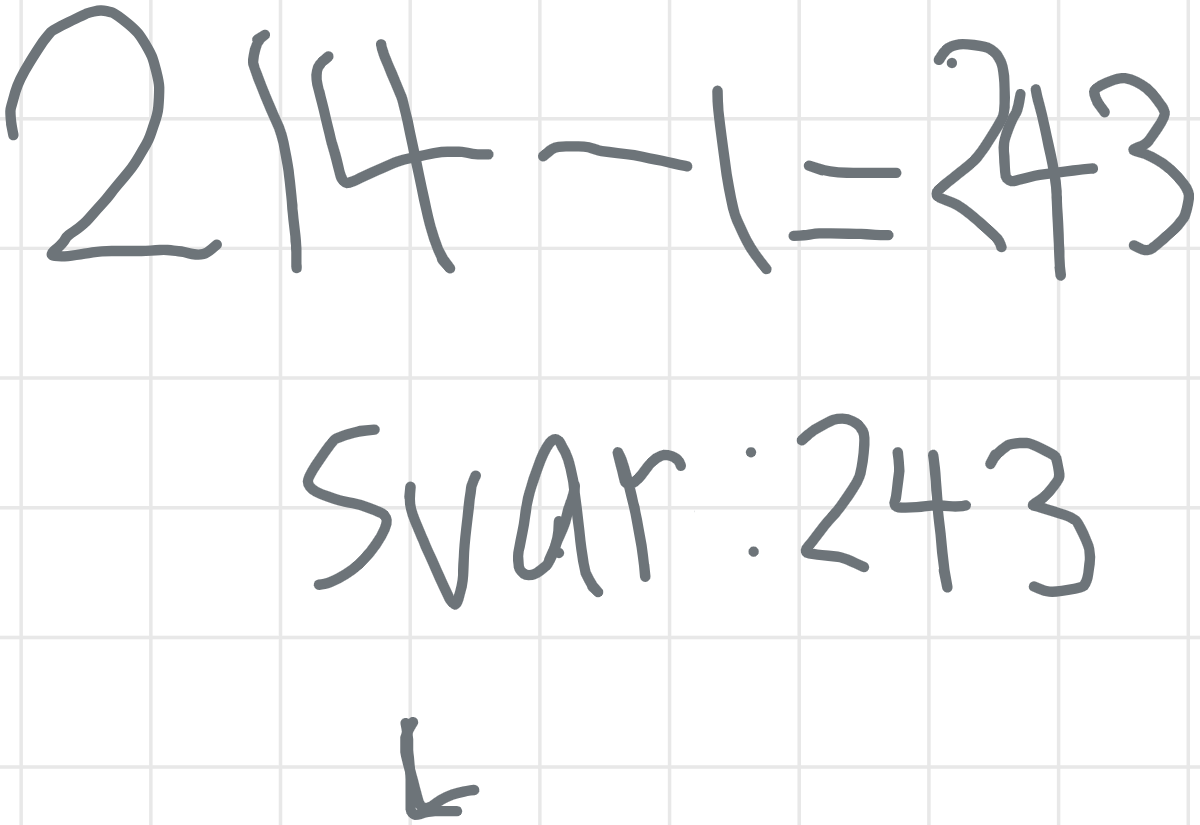 214-1=243
Svar:243